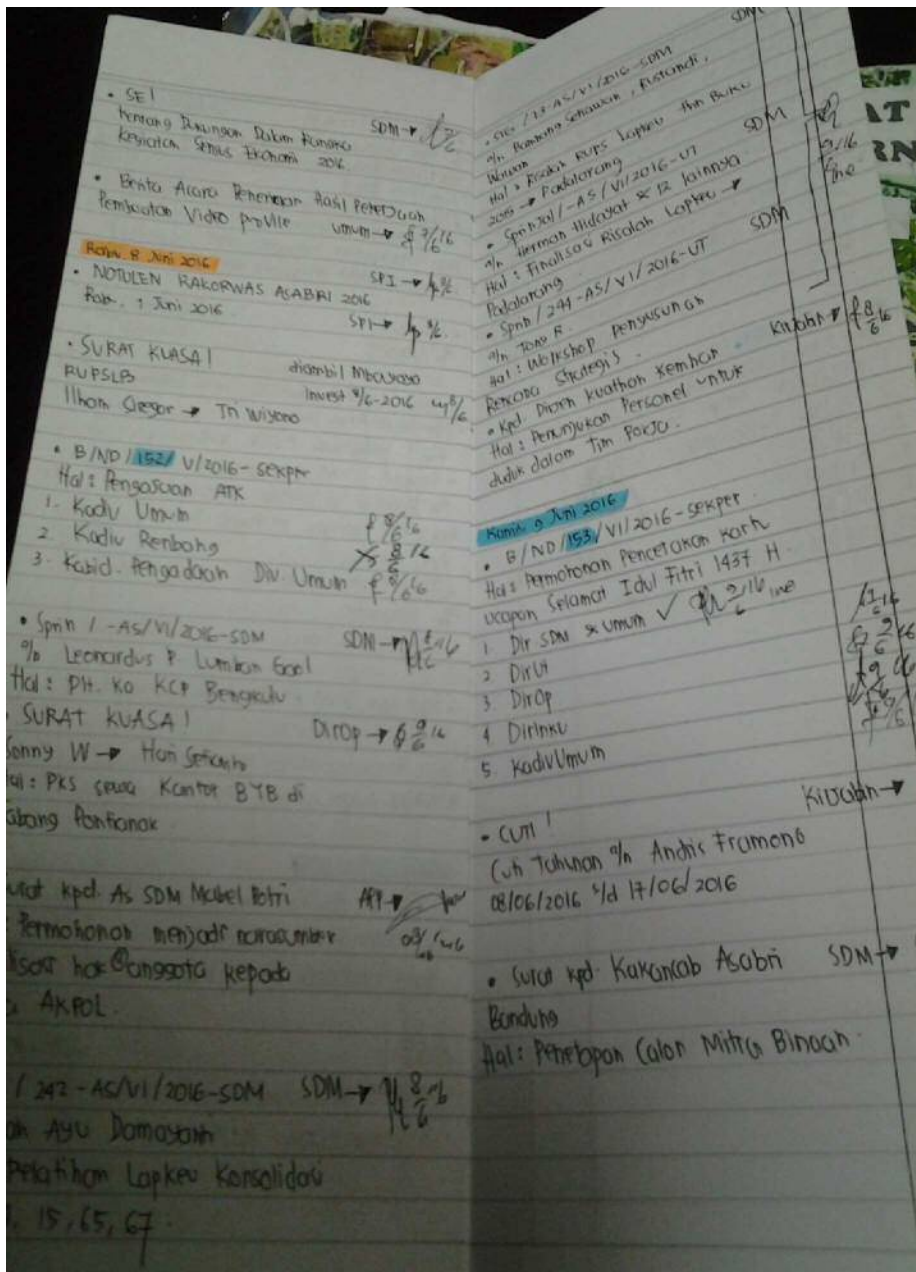 • SE!
tentang Dukungan Dalam Rangka SDM →
Kegiatan Sensus Ekonomi 2016
• Berita Acara Penerimaan Hasil Pekerjaan
Pembuatan Video profile umum → 7/6 16
Rabu, 8 Juni 2016
• NOTULEN RAKORWAS ASABRI 2016 SPI →
Rabu, 1 Juni 2016
SPI →
• SURAT KUASA!
RUPSLB diambil Mbayoso
Ilham Siregar → Tri Wiyono Invest 8/6-2016
• B/ND/152/V/2016-Sekper
Hal: Pengajuan ATK
1. Kadiv Umum 8/6 16
2. Kadiv Renbang 8/6 16
3. Kabid. Pengadaan Div Umum 8/6 16
• Sprin / -AS/VI/2016-SDM SDM → 8/6 16
a/n Leonardus P Lumban Gaol
Hal: Plt. Ka KCP Bengkulu
SURAT KUASA! Dirop → 9/6 16
Sonny W → Hari Setianto
Hal: PKS sewa Kantor BYB di
Cabang Pontianak
urat kpd. As SDM Mabel Polri
Permohonan menjadi narasumber
isasi hak anggota kepada
AKPOL.
/ 242-AS/VI/2016-SDM SDM → 8/6 16
an Ayu Damayanti
Pelatihan Lapkeu Konsolidasi
, 15, 65, 67.
SDM
-AS/VI/2016-SDM
a/n Bambang Setiawan, Rustandi,
Wawan
Hal: Risalah RUPS Lapkeu thn Buku SDM
2015 → Padalarang 9/16
• Sprin 241-AS/VI/2016-UT ine
a/n Herman Hidayat & 12 lainnya
Hal: Finalisasi Risalah Lapkeu → SDM
Padalarang
• Sprin/244-AS/VI/2016-UT
a/n Tony R.
Hal: Workshop penyusunan
Rencana Strategis Kijabin → 8/6 16
• Kpd. Dirjen Kuathan Kemhan
Hal: Penunjukan Personel untuk
duduk dalam Tim Pokja.
Kamis, 9 Juni 2016
• B/ND/153/VI/2016-Sekper
Hal: Permohonan Pencetakan Kartu
Ucapan Selamat Idul Fitri 1437 H.
1 Dir SDM & Umum ✓ 9/6 16 ine
2 Dirut
3 Dirop
4 Dirinku
5. Kadiv Umum
Kijabin →
• CUTI!
Cuti Tahunan a/n Andris Framono
08/06/2016 s/d 17/06/2016
• Surat kpd. Kakancab Asabri SDM →
Bandung
Hal: Penetapan Calon Mitra Binaan.